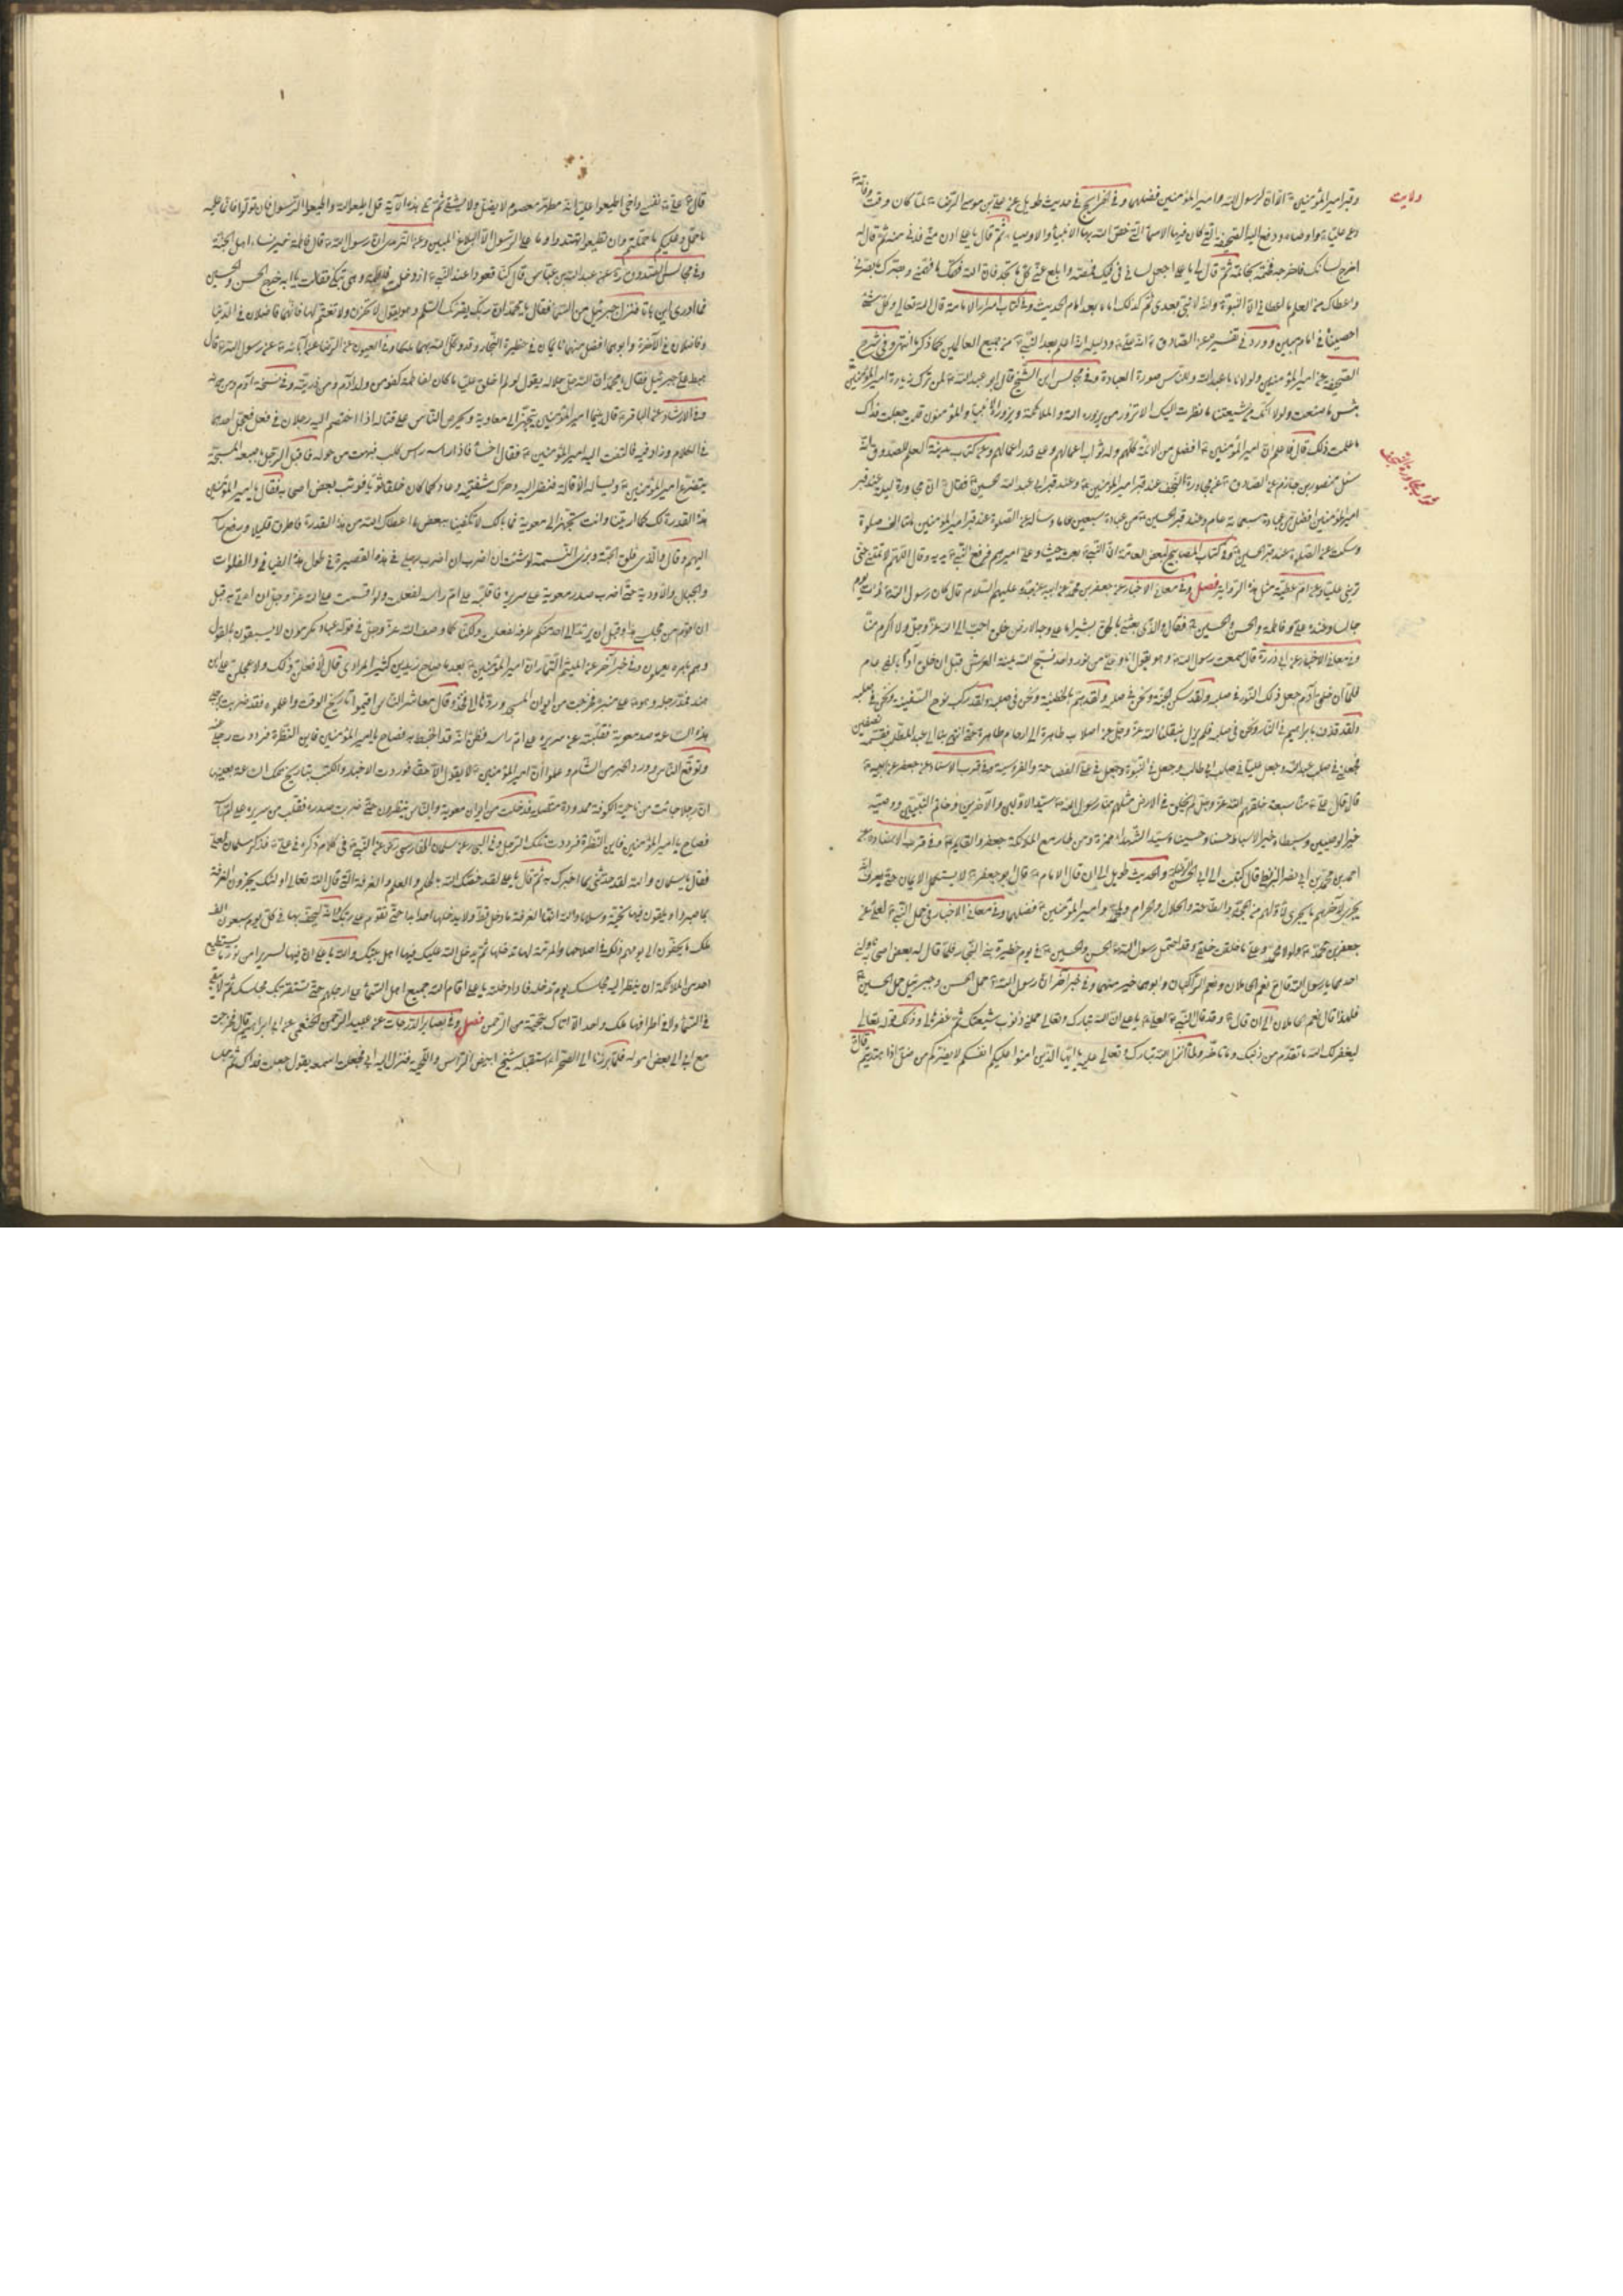 ولايت
وقبر امير المؤمنين لرسول الله وامير المؤمنين فضلهما وفى الخرايج فى حديث طويل عن على بن موسى الرضا لما كان وقت وفاته
دعى عليا واوصاه ودفع اليه الصحيفة التى كان فيها الاسماء التى خص الله بها الانبياء والاوصياء ثم قال يا على ادن منى فدنى منه ثم قال له
اخرج لسانك فاخرجه فختمه بخاتمه ثم قال يا على اجعل لسانى فى فيك فمصه وابلع عنى كل ما تجد
واعطاك من العلم ما اعطانى الا النبوة فانه لا نبى بعدى ثم كذلك امام بعد امام الحديث وفى كتاب اسرار الامامة قال الله تعالى وكل شئ
احصيناه فى امام مبين وورد فى تفسيره عن الصادق انه على ودليله انه اعلم بعد النبى من جميع العالمين كما ذكرنا انتهى وفى شرح
الصحيفة عن امير المؤمنين ولولانا ما عبد الله وللناس صورة العبادة وفى مجالس ابن الشيخ قال ابو عبد الله لمن ترك زيارة امير المؤمنين
بئس ما صنعت ولولا انك من شيعتنا ما نظرت اليك الا تزور من يزوره الله والملائكة ويزوره الانبياء والمؤمنون قلت جعلت فداك
ما علمت ذلك قال فاعلم ان امير المؤمنين افضل من الائمة كلهم وله ثواب اعمالهم وعلى قدر اعمالهم وعن كتاب مدينة العلم للصدوق انه
ثواب مجاورة النجف
سئل منصور بن حازم عن الصادق عن مجاورة النجف عند قبر امير المؤمنين وعند قبر ابى عبد الله الحسين فقال ان مجاورة ليلة عند قبر
امير المؤمنين افضل من عبادة سبعمائة عام وعند قبر الحسين من عبادة سبعين عاما وسأله عن الصلوة عند قبر امير المؤمنين بمائتا الف صلوة
وسكت عن الصلوة عند قبر الحسين وفى كتاب المصابيح لبعض العامة ان النبى بعث جيشا وعلى اميرهم فرفع النبى يديه وقال اللهم لا تمتنى حتى
ترينى عليا وعن ام عطية مثل هذه الرواية فصل وفى معانى الاخبار عن جعفر بن محمد عن ابيه عن جده عليهم السلام قال كان رسول الله ذات يوم
جالسا وعنده على وفاطمة والحسن والحسين فقال والذى بعثنى بالحق بشيرا ما على وجه الارض خلق احب الى الله عز وجل ولا اكرم منا
وفى معانى الاخبار عن ابى ذر قال سمعت رسول الله وهو يقول انا وعلى من نور واحد نسبح الله يمنة العرش قبل ان خلق آدم بالفى عام
فلما ان خلق آدم جعل ذلك النور فى صلبه ولقد سكن الجنة ونحن فى صلبه ولقد هم بالخطيئة ونحن فى صلبه ولقد ركب نوح السفينة ونحن فى صلبه
ولقد قذف بابراهيم فى النار ونحن فى صلبه فلم يزل ينقلنا الله عز وجل من اصلاب طاهرة الى ارحام طاهرة حتى انتهى بنا الى عبد المطلب فقسمه نصفين
فجعلنى فى صلب عبد الله وجعل عليا فى صلب ابى طالب وجعل فى النبوة وجعل فى على الفصاحة والفروسية وفى قرب الاسناد عن جعفر عن ابيه
قال قال على منا سبعة خلقهم الله عز وجل لم يخلق فى الارض مثلهم منا رسول الله سيد الاولين والآخرين وخاتم النبيين ووصيه
خير الوصيين وسبطاه خير الاسباط حسنا وحسينا وسيد الشهداء حمزة ومن طار مع الملائكة جعفر والقايم وفى قرب الاسناد عن
احمد بن محمد بن ابى نصر البزنطى قال كتبت الى ابى الحسن الرضا والحديث طويل الى ان قال الامام قال ابو جعفر لا يستكمل الايمان حتى يعرف انه
يجرى لآخرهم ما يجرى لاولهم من الحجة والطاعة والحلال والحرام ولمحمد وامير المؤمنين فضلهما وفى معانى الاخبار فى حمل النبى لعلى عن
جعفر بن محمد ولولا محمد وعلى ما خلقت خلقى وقد احتمل رسول الله الحسن والحسين فى يوم حظيرة بنى النجار فلما قال له بعض اصحابه ناولنى
احدهما يا رسول الله قال نعم الحاملان ونعم الراكبان وابوهما خير منهما وفى خبر آخر ان رسول الله حمل الحسن وجبرئيل حمل الحسين
فلهذا قال نعم الحاملان الى ان قال وقد قال النبى لعلى يا على ان الله تبارك وتعالى حملنى ذنوب شيعتك ثم غفرها لى وذلك قوله تعالى
ليغفر لك الله ما تقدم من ذنبك وما تاخر ولما انزل الله تبارك وتعالى عليه يا ايها الذين امنوا عليكم انفسكم لا يضركم من ضل اذا اهتديتم
قال
قال على نفسى واخى اطيعوا عليا فانه مطهر معصوم لا يضل ولا يشقى ثم تلى هذه الآية قل اطيعوا الله واطيعوا الرسول فان تولوا فانما عليه
ما حمل وعليكم ما حملتم وان تطيعوه تهتدوا وما على الرسول الا البلاغ المبين وعن الترمذى ان رسول الله قال فاطمة خير نساء اهل الجنة
وفى مجالس الصدوق عن عبد الله بن عباس قال كنا قعودا عند النبى اذ دخلت فاطمة وهى تبكى فقالت يا ابه خرج الحسن والحسين
فما ادرى اين باتا فنزل جبرئيل من السماء فقال يا محمد ان ربك يقرئك السلم وهو يقول لا تحزن ولا تغتم لهما فانهما فاضلان فى الدنيا
وفاضلان فى الآخرة وابوهما افضل منهما نايمان فى حظيرة النجار وقد وكل الله بهما ملكا وفى العيون عن الرضا عن آبائه عن رسول الله قال
هبط على جبرئيل فقال يا محمد ان الله جل جلاله يقول لو لم اخلق عليا ما كان لفاطمة كفو من ولد آدم ومن ذريته وفى نسخة آدم ومن دونه
وفى الارشاد عن الباقر قال بينما امير المؤمنين يتجهز الى معاوية ويحرض الناس على قتاله اذا اختصم اليه رجلان فى فعل فعجل احدهما
فى الكلام وزاد فيه فالتفت اليه امير المؤمنين فقال اخسأ فاذا راسه راس كلب فبهت من حوله فاقبل الرجل باصبعه المسبحة
يتضرع امير المؤمنين ويساله الاقالة فنظر اليه وحرك شفتيه وعاد كما كان خلقا سويا فوثب بعض اصحابه فقال يا امير المؤمنين
هذه القدرة لك كما اريتنا وانت تجهز الى معوية فما بالك لا تكفيناه ببعض ما اعطاك الله من هذه القدرة فاطرق قليلا ورفع رأسه
اليهم وقال والذى فلق الحبة وبرى النسمة لو شئت ان اضرب برجلى هذه القصيرة فى طول هذه الفيافى والفلوات
والجبال والاودية حتى اضرب صدر معوية على سريره فاقلبه على ام راسه لفعلت ولو اقسمت على الله عز وجل ان اوتى به قبل
ان اقوم من مجلسى هذا وقبل ان يرتد الى احد منكم طرفه لفعلت ولكنا كما وصف الله عز وجل فى قوله عباد مكرمون لا يسبقونه بالقول
وهم بامره يعملون وفى خبر آخر عن الميثم التمار ان امير المؤمنين
فمد رجله وهو على منبره فخرجت من ابواب المسجد وردها الى فخذه وقال معاشر الناس اقيموا تاريخ الوقت واعلموه فقد ضربت برجلى
هذه الساعة صدر معوية فقلبته عن سريره على ام راسه فظن انه قد احيط به فصاح يا امير المؤمنين فاين النظرة فرددت رجلى عنه
وتوقع الناس ورود الخبر من الشام وعلموا ان امير المؤمنين لا يقول الا حقا فوردت الاخبار والكتب بتاريخ تلك الساعة بعينها
ان رجلا جائت من ناحية الكوفة ممدودة متصلة فدخلت من ايوان معوية والناس ينظرون حتى ضربت صدره فقلب من سريره على ام راسه
فصاح يا امير المؤمنين فاين النظرة فرددت تلك الرجل وفى البرسى عن سلمان الفارسى عن النبى فى كلام ذكره فى على فذكره سلمان لعلى
فقال يا سلمان والله لقد حدثنى بما اخبرك به ثم قال يا على لقد خصك الله بالحلم والعلم والغرفة التى قال الله تعالى اولئك يجزون الغرفة
بما صبروا ويلقون فيها تحية وسلاما والله انها لغرفة ما دخلها احد قط ولا يدخلها احد ابدا حتى تقوم على ربك وانه ليحف بها فى كل يوم سبعون الف
ملك ما يحفون الى يومهم ذلك فى اصلاحها والمرمة لها حتى تدخلها ثم يدخل الله عليك فيها اهل بيتك والله يا على ان فيها لسريرا من نور ما يستطيع
احد من الملائكة ان ينظر اليه مجلسك يوم تدخله فاذا دخلته يا على اقام الله جميع اهل السماء على ارجلهم حتى تستقر بك مجلسك ثم لا يبقى
فى السماء ولا فى اطرافها ملك واحد الا اتاك بتحية من الرحمن فصل وفى بصاير الدرجات عن عبيد بن عبد الرحمن الخثعمى عن ابى ابراهيم قال خرجت
مع ابى الى بعض امواله فلما برزنا الى الصحراء استقبله شيخ ابيض الراس واللحية فنزل اليه ابى فجعلت اسمعه يقول جعلت فداك ثم جلسا